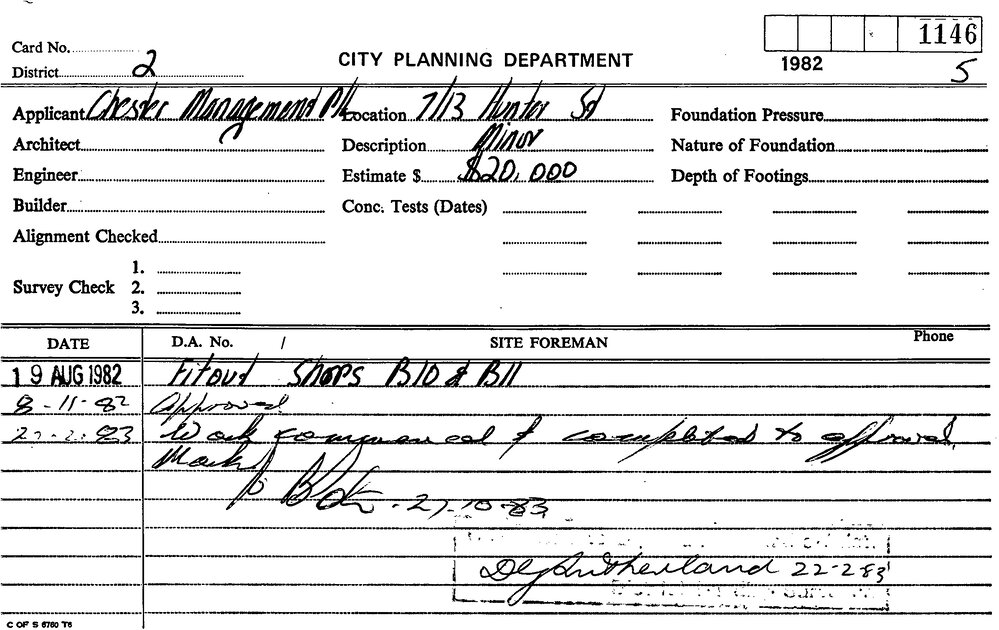 1146
Card No.
CITY PLANNING DEPARTMENT
1982
District 2
5
Applicant Chester Management P/L Location 7/13 Hunter St Foundation Pressure
Architect Description Minor Nature of Foundation
Engineer Estimate $ $20,000 Depth of Footings
Builder Conc. Tests (Dates)
Alignment Checked
1.
Survey Check 2.
3.
DATE D.A. No. / SITE FOREMAN Phone
19 AUG 1982 Fitout Shops B10 & B11
8-11-82 Approved
83 Work commenced & completed to approval
27-10-83
Sutherland 22-2-83
C OF S 6760 T6